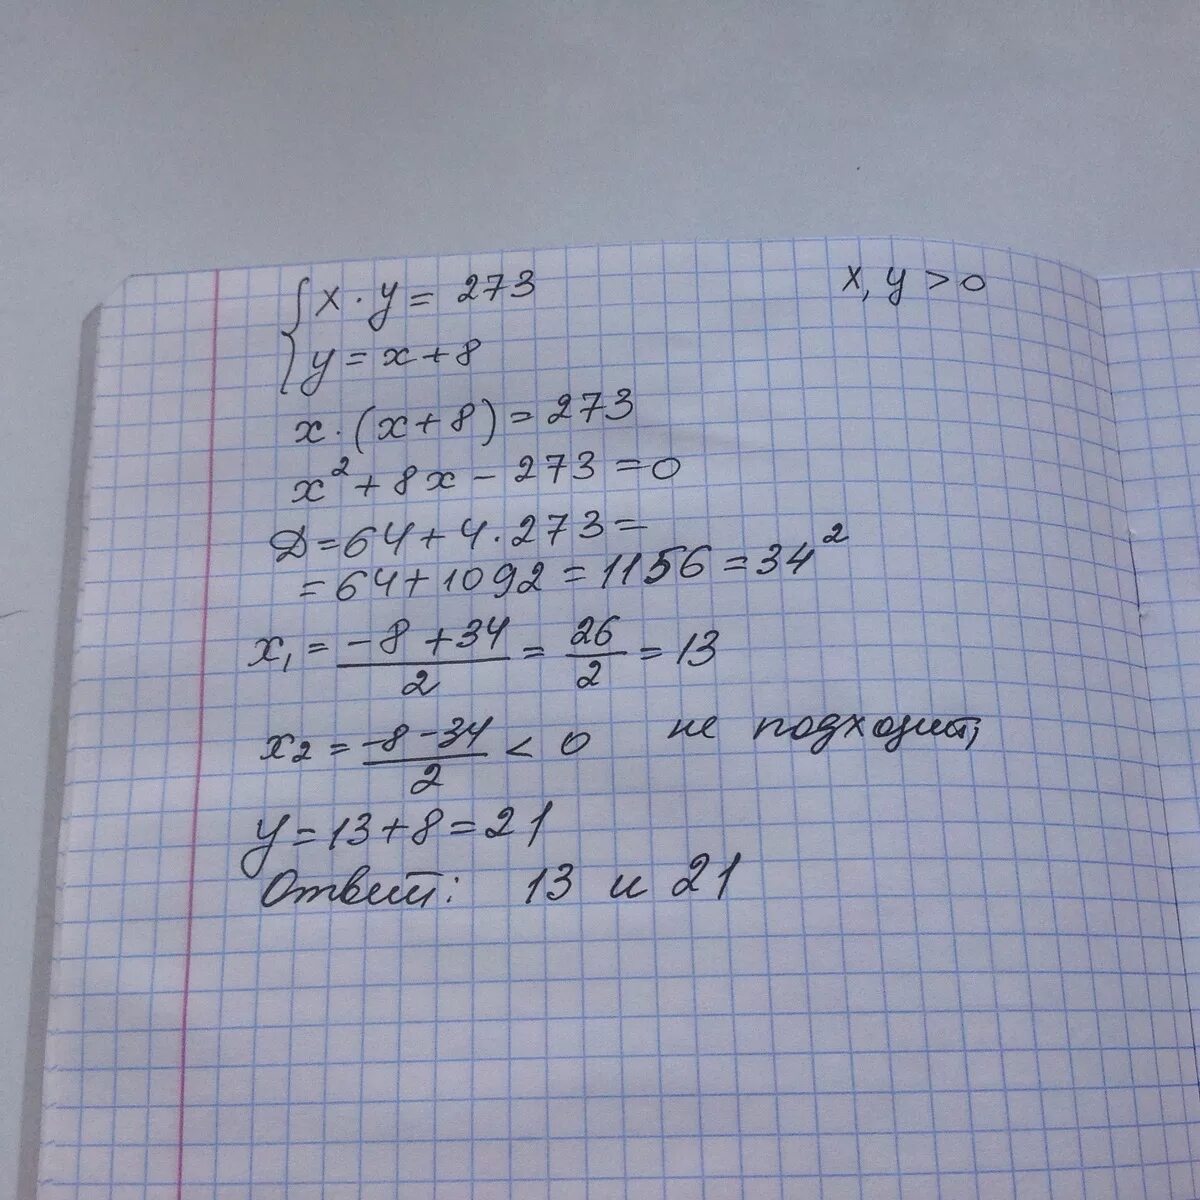 x · y = 273 x, y > 0
y = x + 8
x · (x + 8) = 273
x² + 8x - 273 = 0
Д = 64 + 4 · 273 =
= 64 + 1092 = 1156 = 34²
x₁ = (-8 + 34)/2 = 26/2 = 13
x₂ = (-8 - 34)/2 < 0 не подходит;
y = 13 + 8 = 21
Ответ: 13 и 21